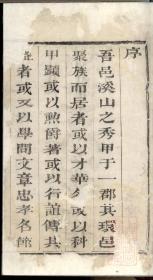 序
吾邑溪山之秀甲于一郡其環邑
聚族而居者或以才華或以科
甲顯或以勲爵著或以行誼傳其
者或又以學問文章忠孝名節